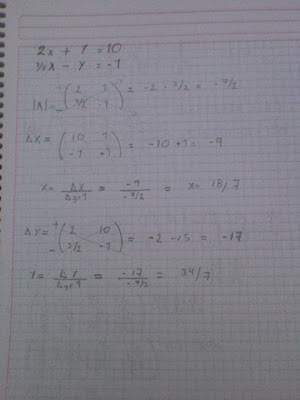 2x + y = 10
3/2x - y = -1
|A| = (2 1 3/2 -1) = -2 - 3/2 = -7/2
Δx = (10 1 -1 -1) = -10 + 1 = -9
x = Δx / = -9 / -7/2 = x = 18/7
Δy = (2 10 3/2 -1) = -2 - 15 = -17
y = Δy / = -17 / -7/2 = 34/7